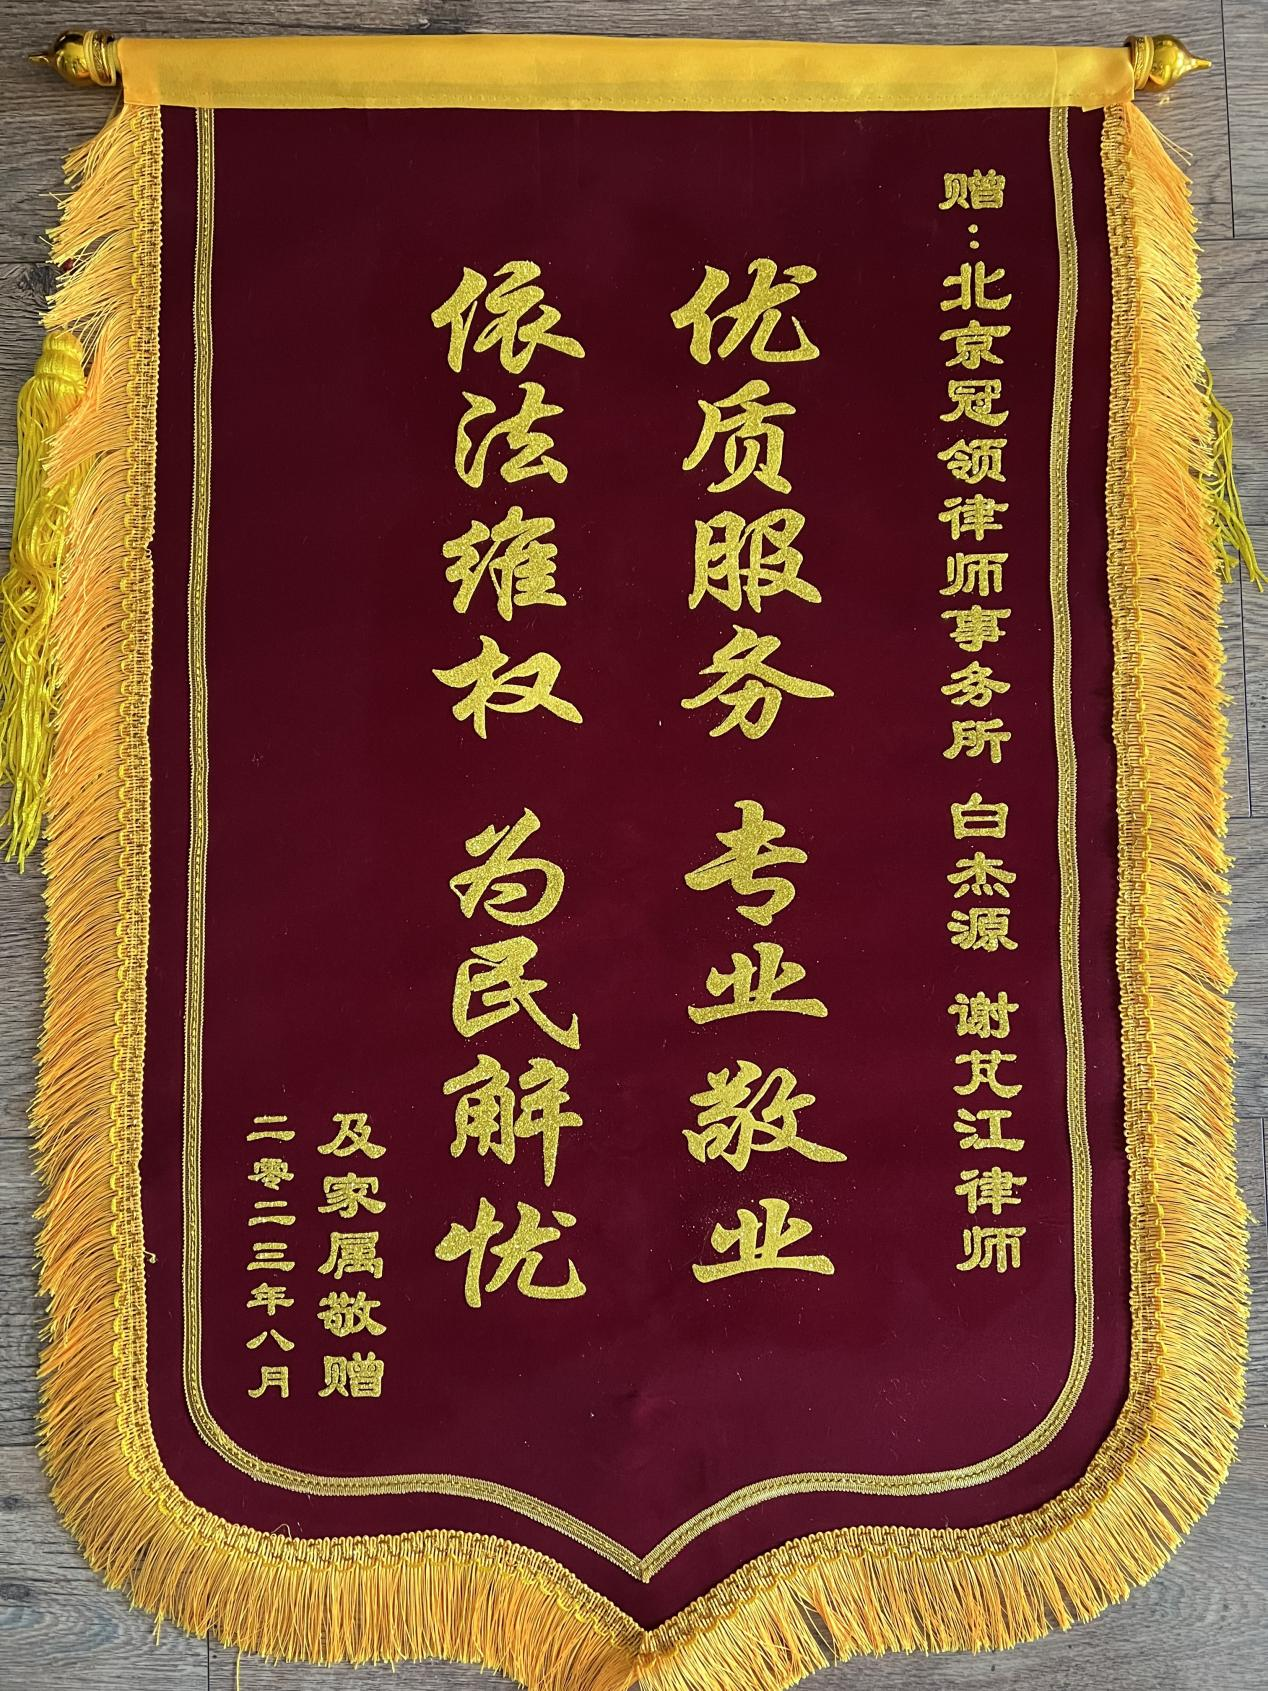 赠：北京冠领律师事务所 白杰源 谢芃江律师
优质服务 专业敬业
依法维权 为民解忧
及家属敬赠
二零二三年八月